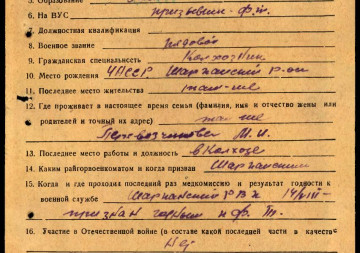 5. Образование
6. На ВУС призывник ф.т.
7. Должностная квалификация
8. Военное звание рядовой
9. Гражданская специальность Колхозник
10. Место рождения ЧАССР Шаржанский р-он
11. Последнее место жительства там-же
12. Где проживает в настоящее время семья (фамилия, имя и отчество жены или
родителей и точный их адрес) там же
М. И.
13. Последнее место работы и должность в Колхозе
14. Каким райгорвоенкоматом и когда призван Шаржанским
15. Когда и где проходил последний раз медкомиссию и результат годности к
военной службе Шаржанский РВК 14/VIII-
признан годным к ф. т.
16. Участие в Отечественной войне (в составе какой последней части в качестве
Нет